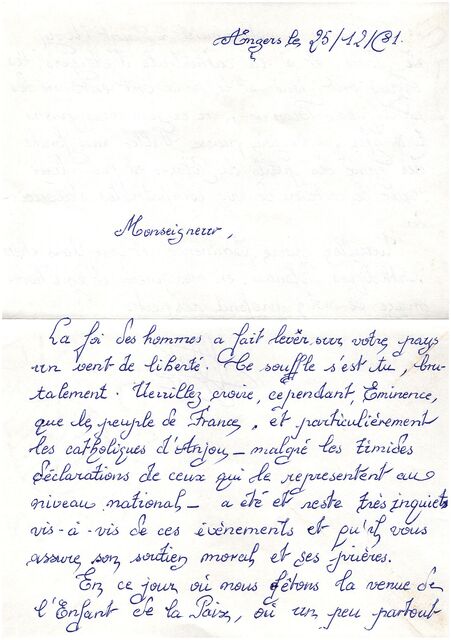 Angers le, 25/12/81.
Monseigneur,
La foi des hommes a fait lever sur votre pays
un vent de liberté. Ce souffle s'est tu, bru-
talement. Veuillez croire, cependant, Eminence,
que le peuple de France, et particulièrement
les catholiques d'Anjou - malgré les timides
déclarations de ceux qui le representent au
niveau national - a été et reste très inquiet
vis-à-vis de ces évènements et qu'il vous
assure son soutien moral et ses prières.
En ce jour où nous fêtons la venue de
l'Enfant de la Paix, où un peu partout